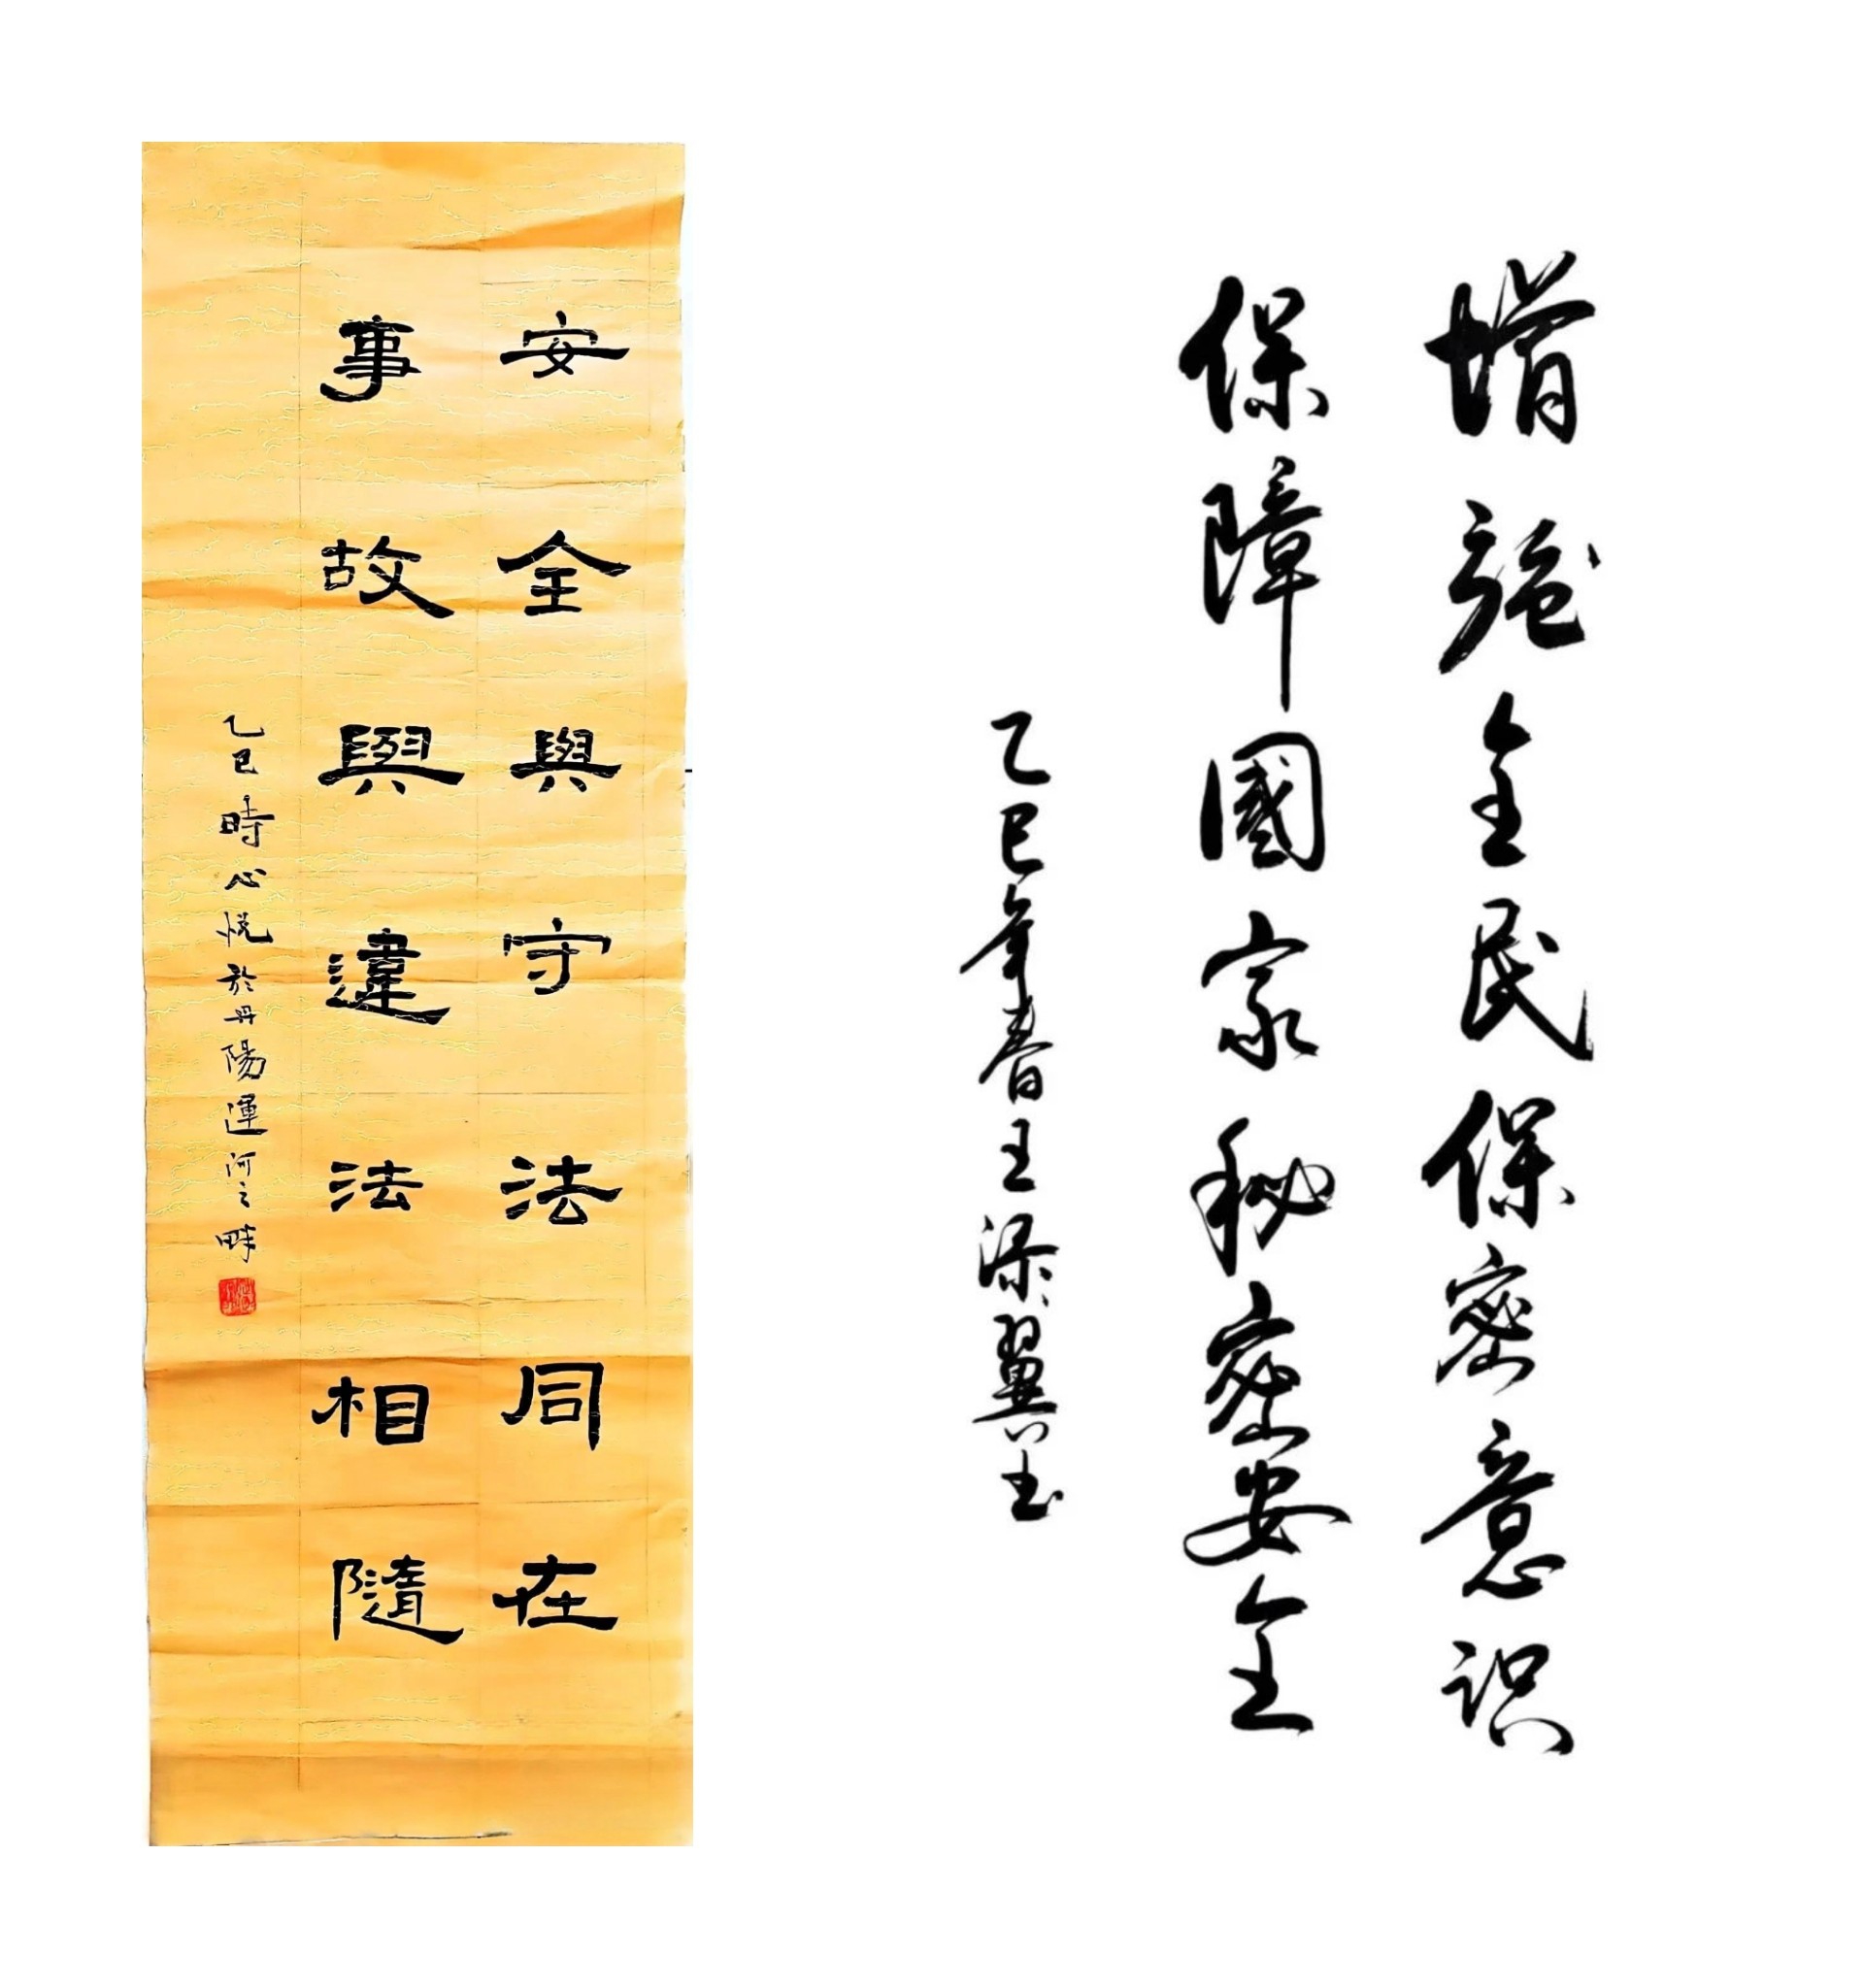 增強全民保密意识
保障國家秘密安全
乙巳年春王梁翼书
安全與守法同在
事故與違法相隨
乙巳時心悦於丹陽運河之畔